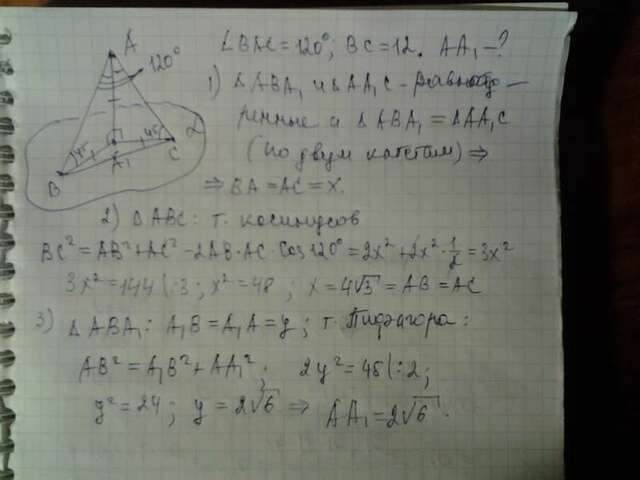 A
120°
45
45
A₁
B
C
α
∠BAC = 120°; BC = 12. AA₁ - ?
1) △ABA₁ и △AA₁C - равнобед-
ренные и △ABA₁ = △AA₁C
(по двум катетам) ⇒
⇒ BA = AC = x.
2) △ABC: т. косинусов
BC² = AB² + AC² - 2AB·AC·Cos120° = 2x² + 2x²·1/2 = 3x²
3x² = 144 | :3 ; x² = 48 ; x = 4√3 = AB = AC
3) △ABA₁: A₁B = A₁A = y ; т. Пифагора:
AB² = A₁B² + AA₁² ; 2y² = 48 | :2 ;
y² = 24 ; y = 2√6 ⇒ AA₁ = 2√6 .